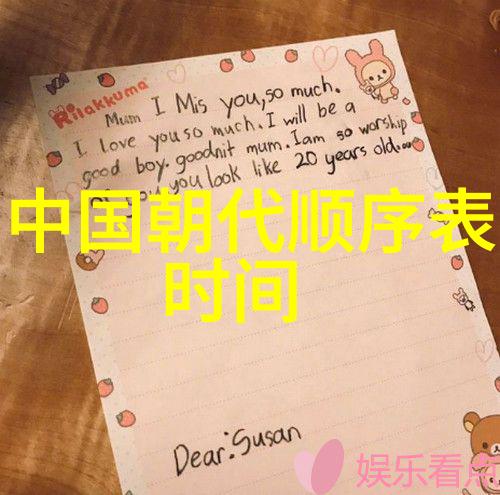 Rilakkuma
Mum I Mis you, so much.
I love you so much. I will be a
good boy. goodnit mum. I am so worship
you look like 20 years old.
中国朝代顺序表
时间
Dear: Susan
娱乐看点